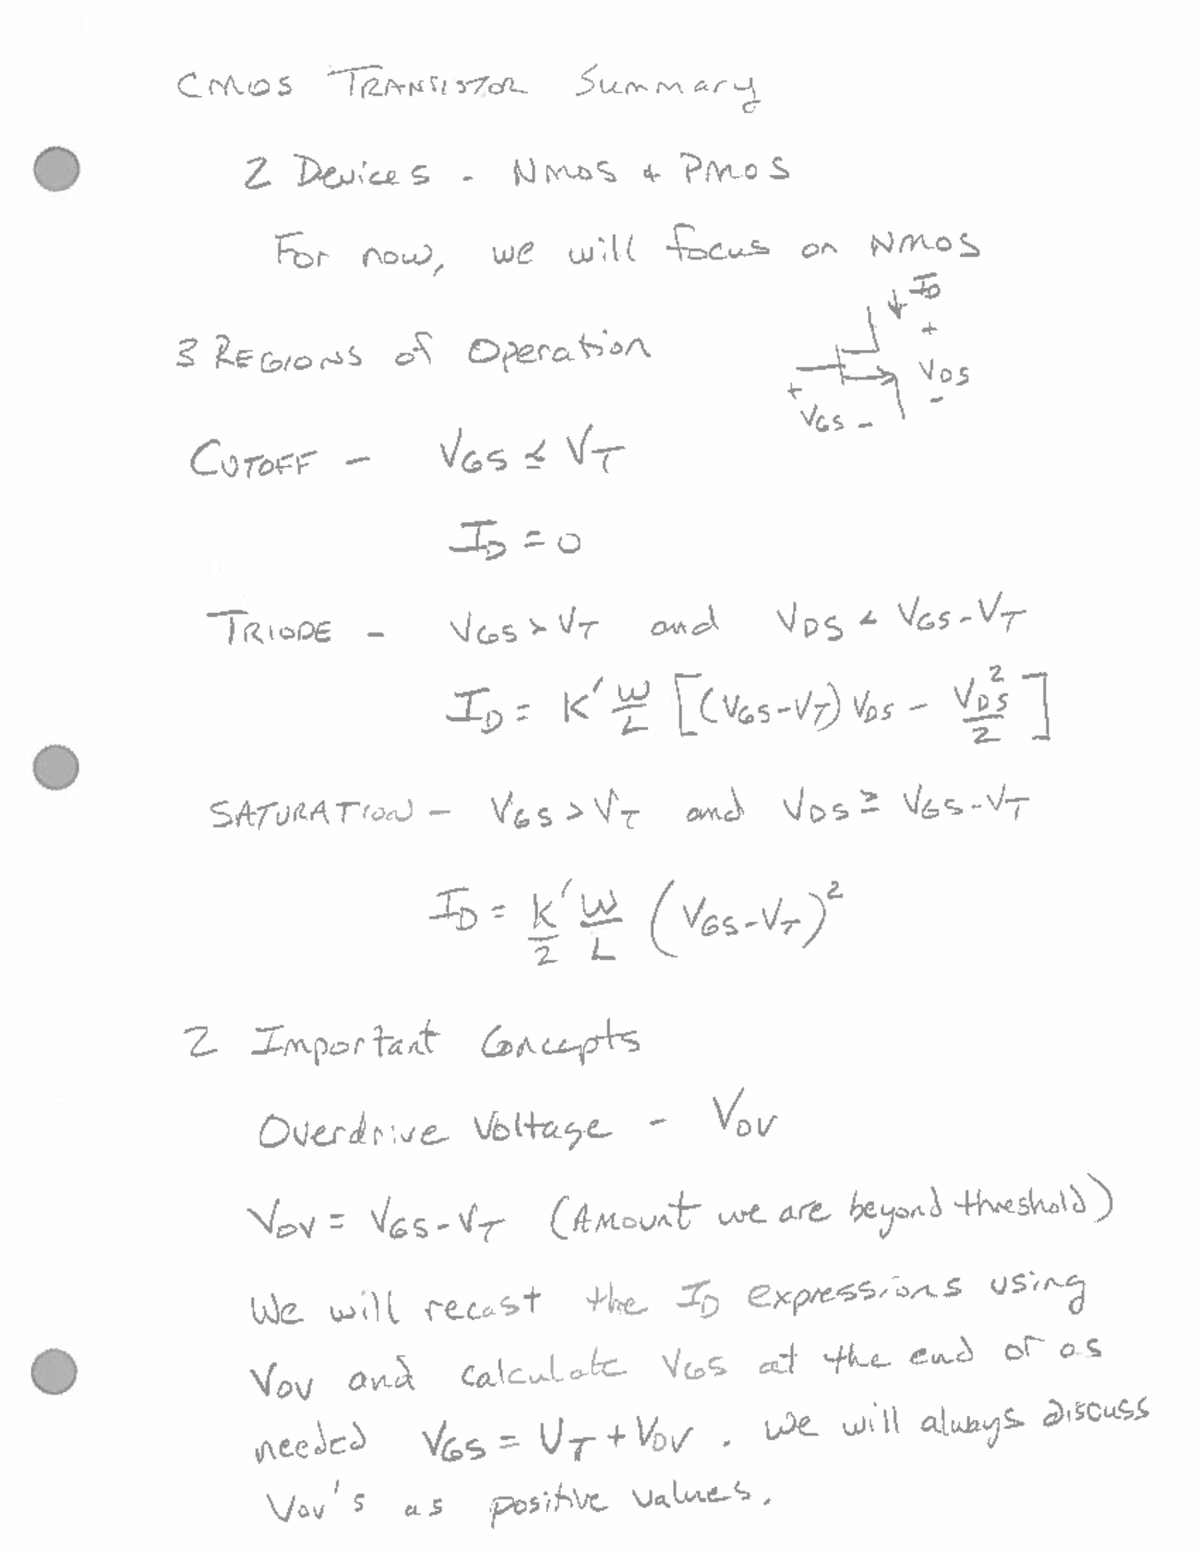 CMOS TRANSISTOR Summary
2 Devices - NMOS & PMOS
For now, we will focus on NMOS
3 REGIONS of Operation
I_D
+
V_DS
-
+
V_GS -
CUTOFF - V_GS ≤ V_T
I_D = 0
TRIODE - V_GS > V_T and V_DS < V_GS - V_T
I_D = K' W/L [(V_GS - V_T) V_DS - V_DS²/2]
SATURATION - V_GS > V_T and V_DS ≥ V_GS - V_T
I_D = K'/2 W/L (V_GS - V_T)²
2 Important Concepts
Overdrive Voltage - V_OV
V_OV = V_GS - V_T (Amount we are beyond threshold)
We will recast the I_D expressions using
V_OV and calculate V_GS at the end or as
needed V_GS = V_T + V_OV. We will always discuss
V_OV's as positive values.